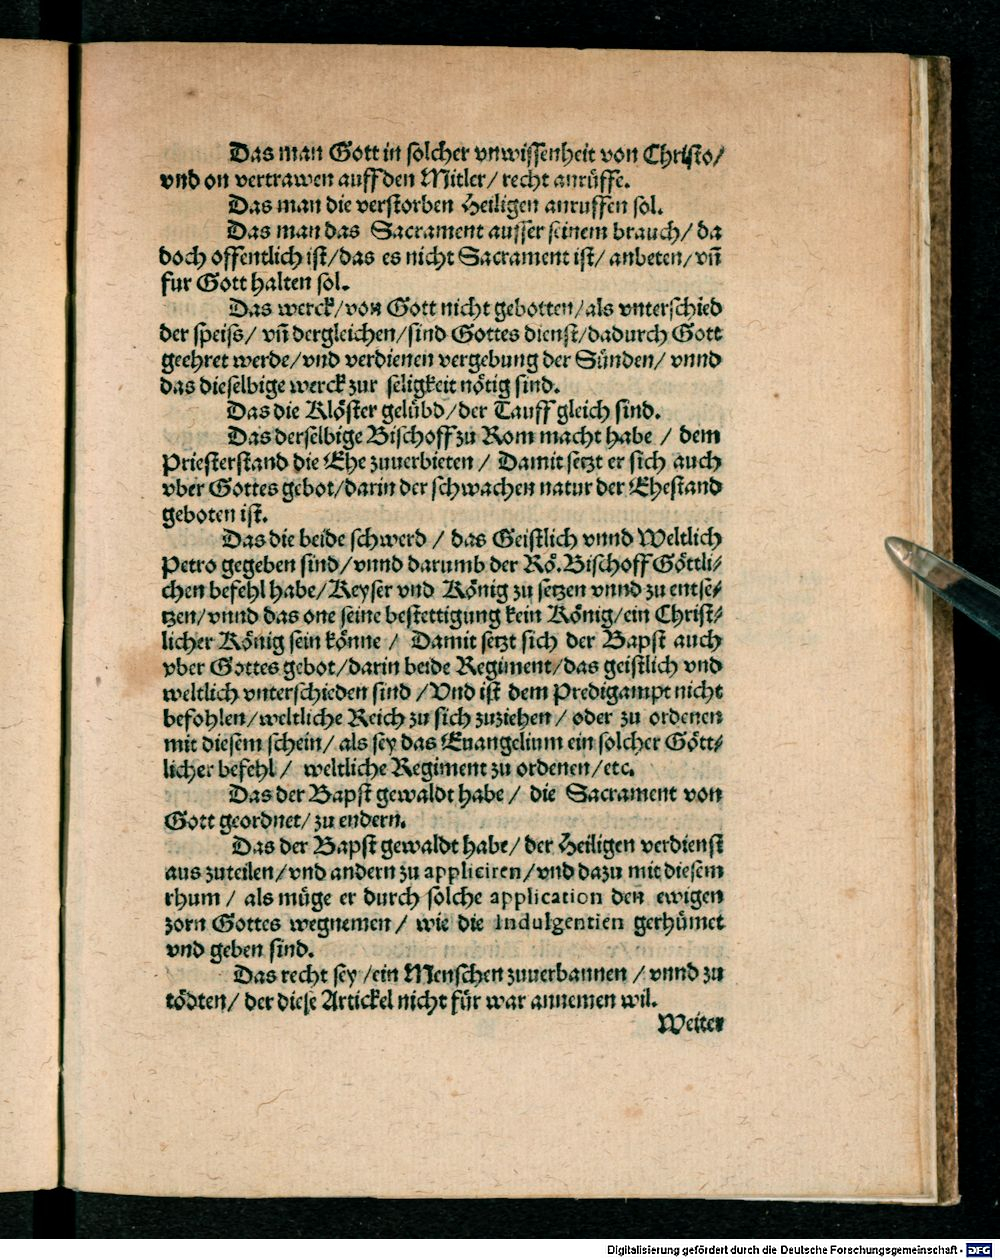 Das man Gott in solcher vnwissenheit von Christo/
vnd on vertrawen auff den Mitler/ recht anrüffe.
Das man die verstorben Heiligen anruffen sol.
Das man das Sacrament ausser seinem brauch/ da
doch offentlich ist/das es nicht Sacrament ist/ anbeten/ vñ
fur Gott halten sol.
Das werck/von Gott nicht gebotten/als vnterschied
der speiß/ vñ dergleichen/sind Gottes dienst/dadurch Gott
geehret werde/vnd verdienen vergebung der Sünden/ vnnd
das dieselbige werck zur seligkeit nötig sind.
Das die Klöster gelübd/der Tauff gleich sind.
Das derselbige Bischoff zu Rom macht habe / dem
Priesterstand die Ehe zuuerbieten / Damit setzt er sich auch
vber Gottes gebot/darin der schwachen natur der Ehestand
geboten ist.
Das die beide schwerd / das Geistlich vnnd Weltlich
Petro gegeben sind/vnnd darumb der Rö.Bischoff Göttli-
chen befehl habe/Keyser vnd König zu setzen vnnd zu entse-
tzen/vnnd das one seine bestettigung kein König/ein Christ-
licher König sein könne / Damit setzt sich der Bapst auch
vber Gottes gebot/darin beide Regiment/das geistlich vnd
weltlich vnterschieden sind /Vnd ist dem Predigampt nicht
befohlen/weltliche Reich zu sich zuziehen/ oder zu ordenen
mit diesem schein/ als sey das Euangelium ein solcher Gött-
licher befehl / weltliche Regiment zu ordenen/etc.
Das der Bapst gewaldt habe / die Sacrament von
Gott geordnet/ zu endern.
Das der Bapst gewaldt habe/ der Heiligen verdienst
aus zuteilen/vnd andern zu appliciren/vnd dazu mit diesem
rhum / als müge er durch solche application den ewigen
zorn Gottes wegnemen / wie die Indulgentien gerhümet
vnd geben sind.
Das recht sey /ein Menschen zuuerbannen / vnnd zu
tödten/ der diese Artickel nicht für war annemen wil.
Weiter
Digitalisierung gefördert durch die Deutsche Forschungsgemeinschaft - DFG